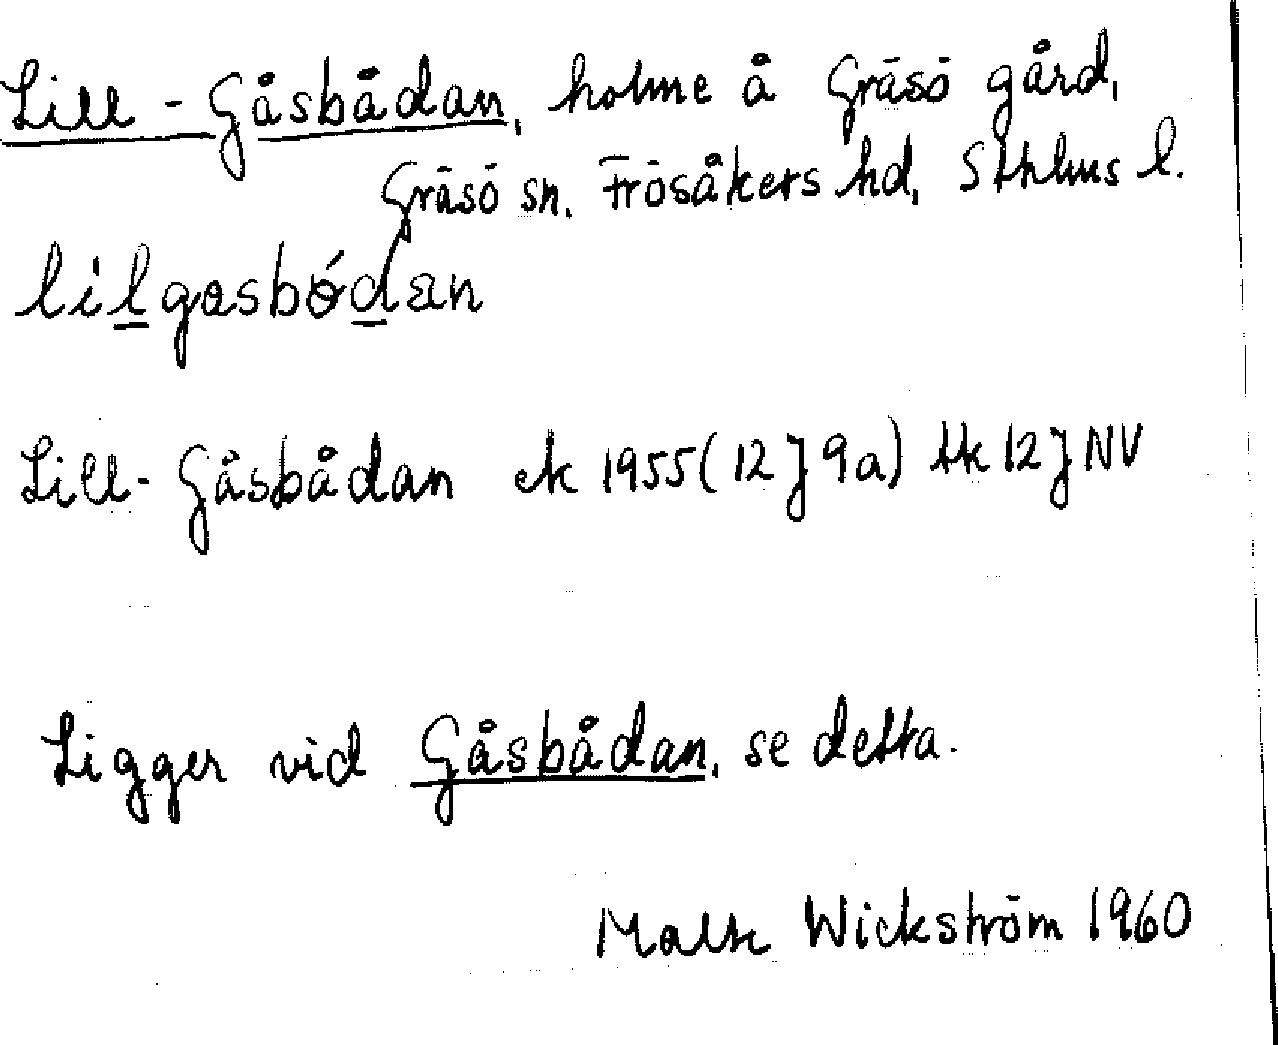 Lill-Gåsbådan, holme å Gräsö gård,
Gräsö sn. Frösåkers hd, Sthlms l.
lilgasbódan
Lill-Gåsbådan ek 1955 (12 J 9a) tk 12 J NV
Ligger vid Gåsbådan, se detta.
Malte Wickström 1960